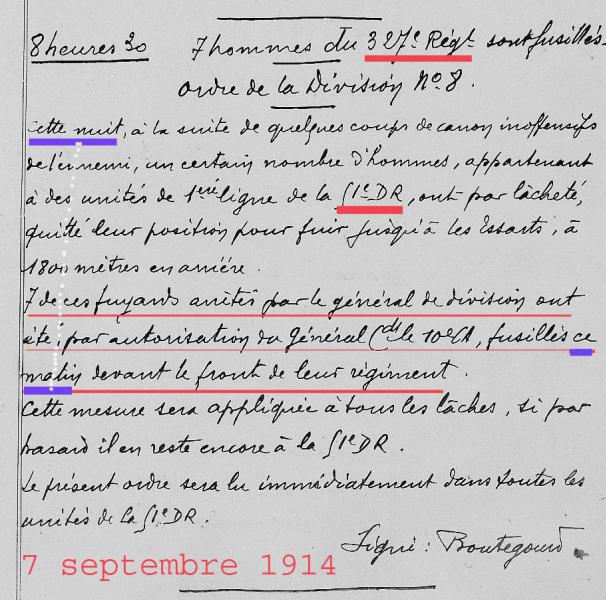 8 heures 30 7 hommes du 327e Régt sont fusillés.
ordre de la Division No 8.
Cette nuit, à la suite de quelques coups de canon inoffensifs
de l'ennemi, un certain nombre d'hommes, appartenant
à des unités de 1ère ligne de la 51e DR, ont par lâcheté,
quitté leur position pour fuir jusqu'à les Essarts, à
1800 mètres en arrière.
7 de ces fuyards arrêtés par le général de division ont
été, par autorisation du Général Cdt le 10e CA, fusillés ce
matin devant le front de leur régiment.
Cette mesure sera appliquée à tous les lâches, si par
hasard il en reste encore à la 51e DR.
Le présent ordre sera lu immédiatement dans toutes les
unités de la 51e DR.
Signé : Boutegourd.
7 septembre 1914